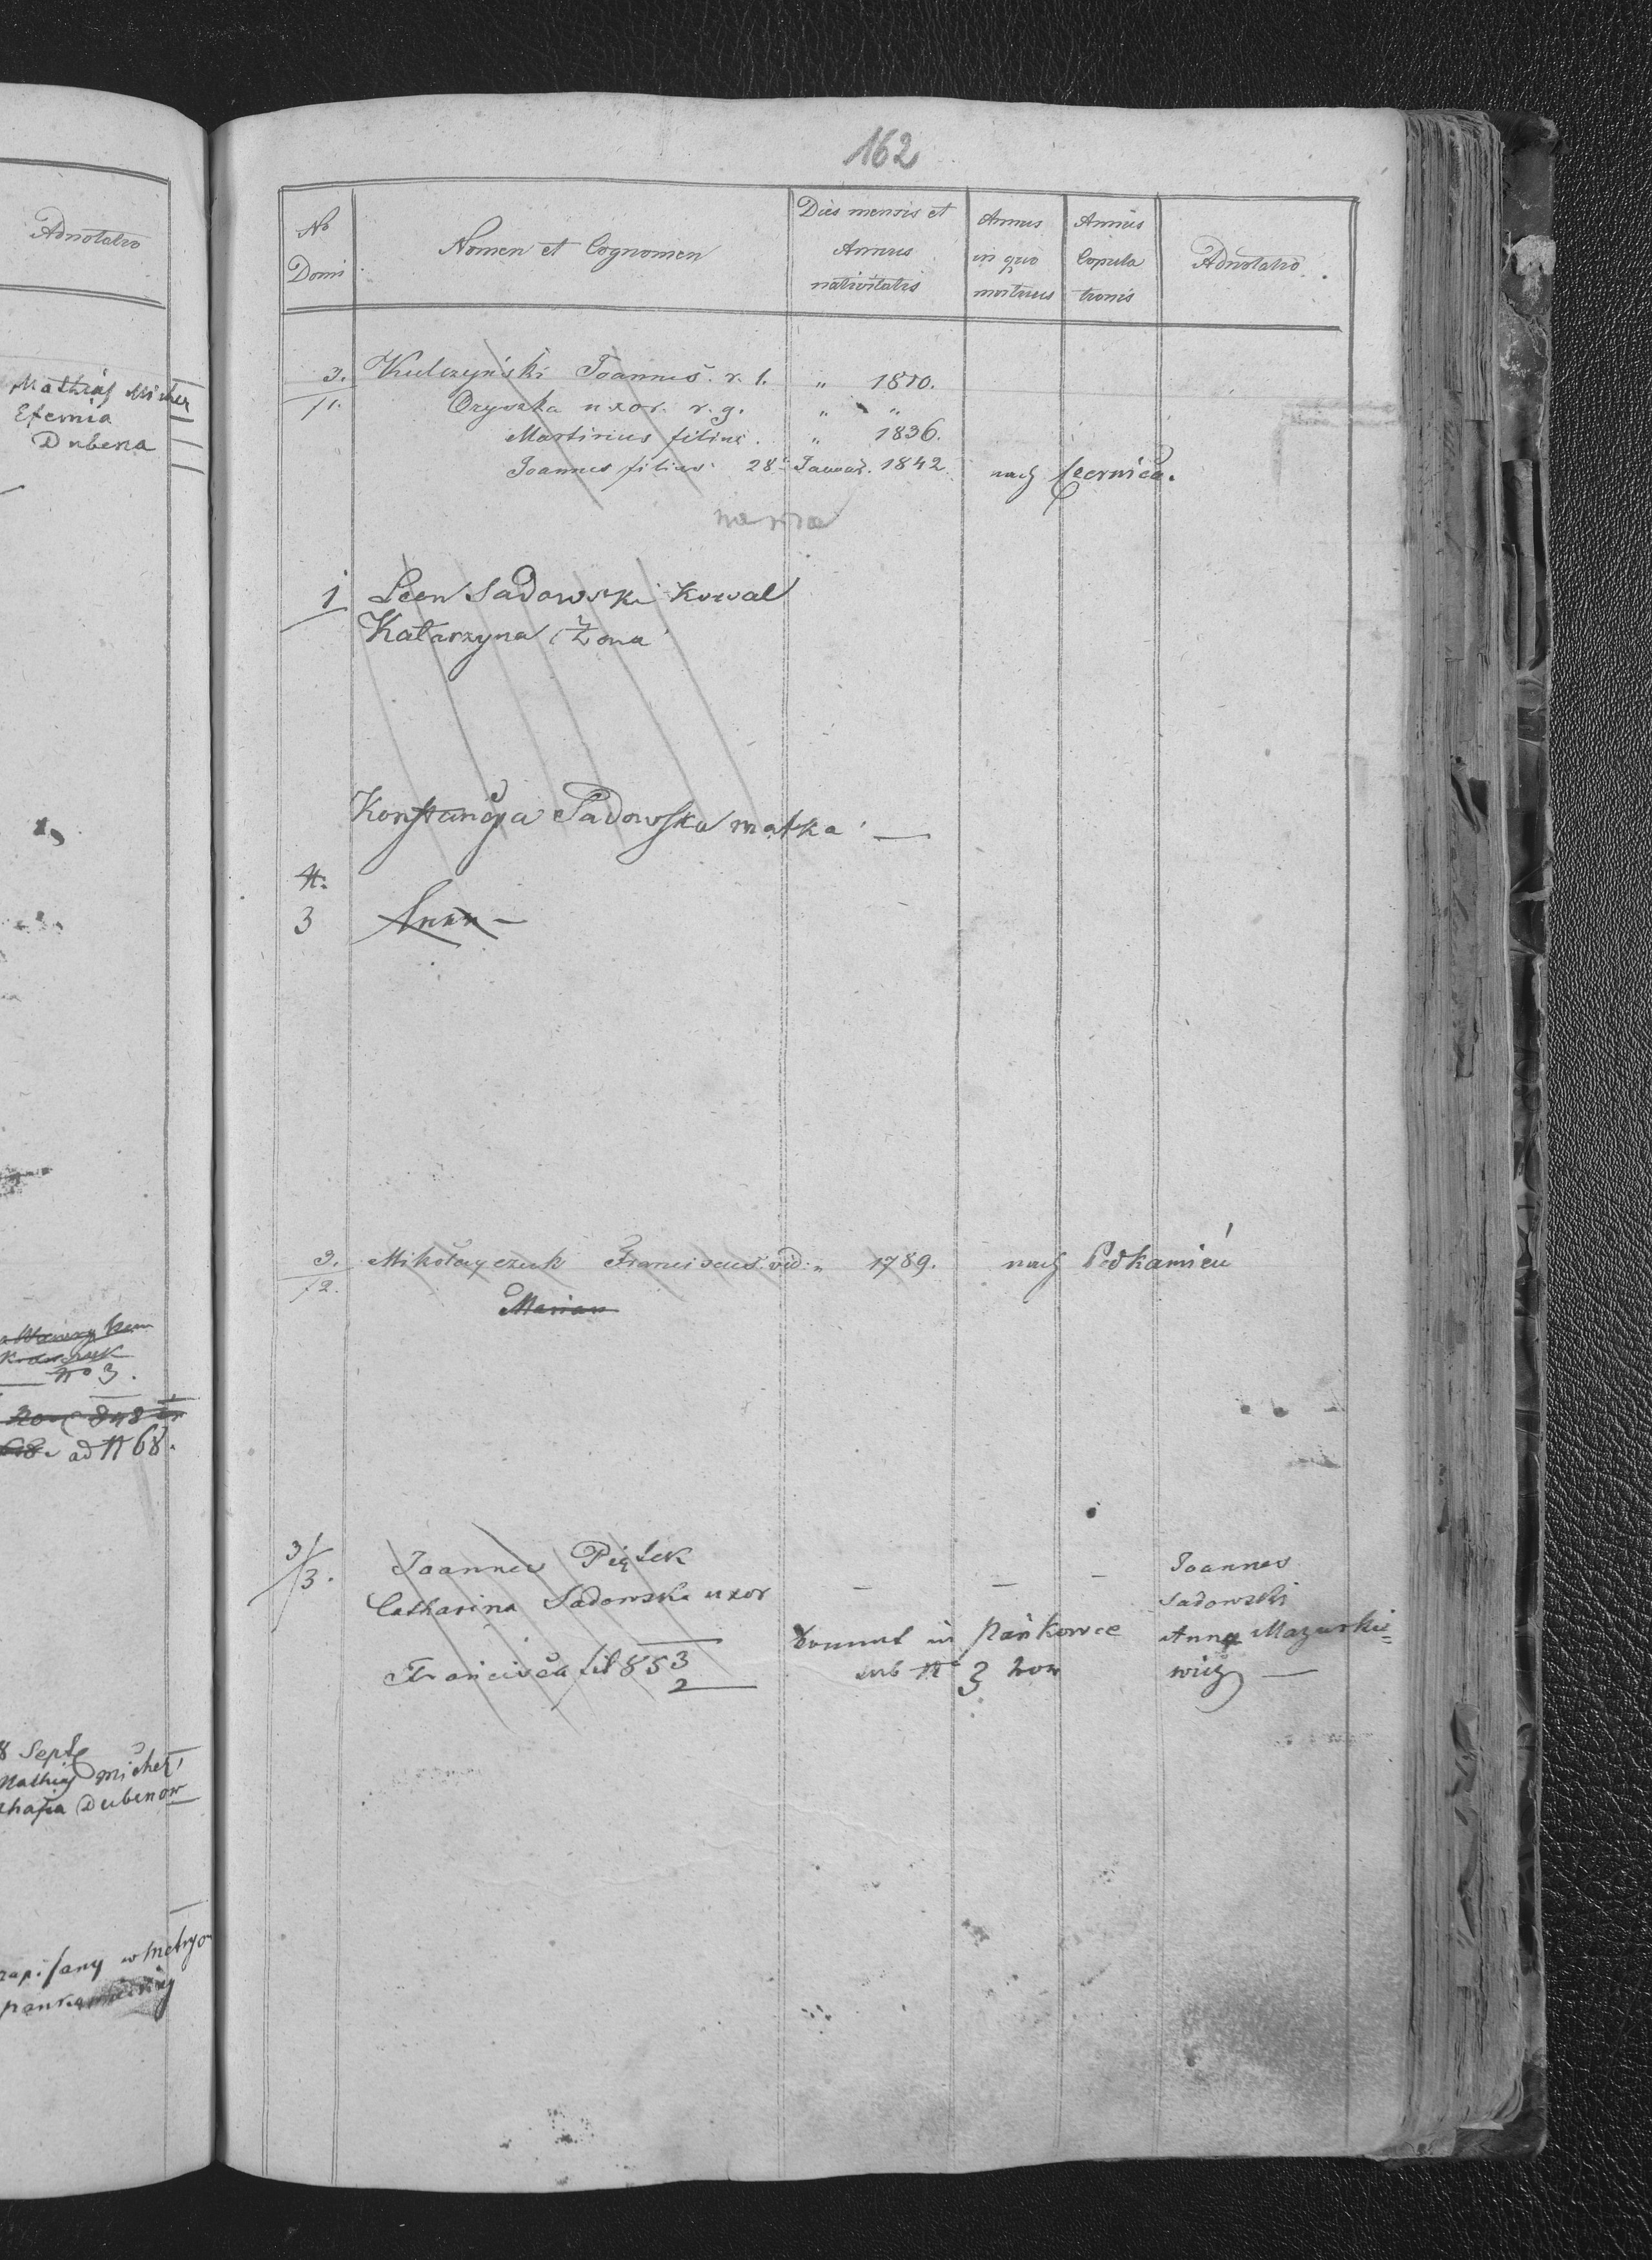 Adnotatio
Mathias Micher
Efemia
Dubena
No 3.
ad N 68.
8 Septe
Mathias Micher
Dubenow
zapisany w metryce
162
No Domi
Nomen et Cognomen
Dies mensis et Annus nativitatis
Annus in quo mortuus
Annus Copulationis
Adnotatio.
3. Kulczyński Joannes. r. l. " 1810.
11. Oryszka uxor. r. g. " "
Martinus filius. " 1836.
Joannes filius 28a Januar. 1842. nach Czernica.
1 Leon Sadowski Kowal
Katarzyna Żona
Konstancya Sadowska matka —
N.
3 Anna —
3. Mikołayczuk Franciscus vid. " 1789. nach Podkamień
12.
Marian
3/3. Joannes Piątek
Catharina Sadowska uxor
Francisca fil 853
2
in Pańkowce
sub No 3
Joannes
Sadowski
Anna Mazurkie=
wicz —